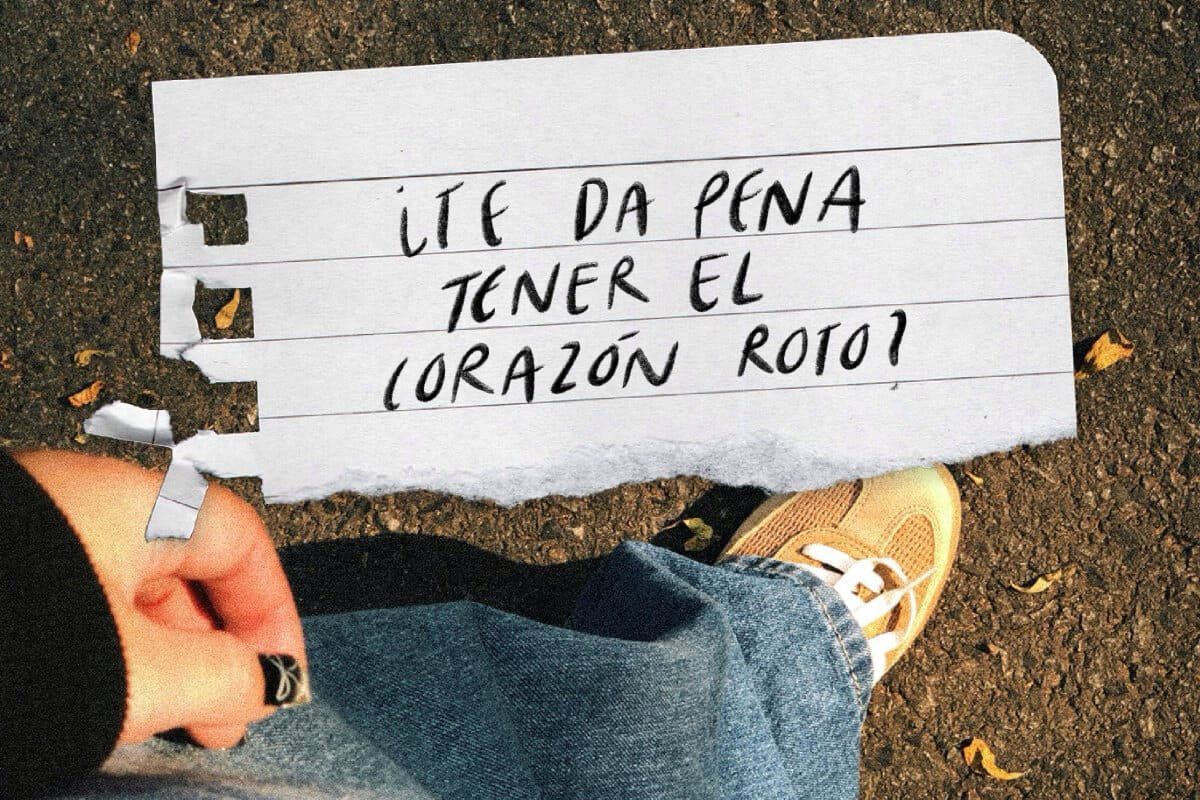 ¿TE DA PENA
TENER EL
CORAZÓN ROTO?